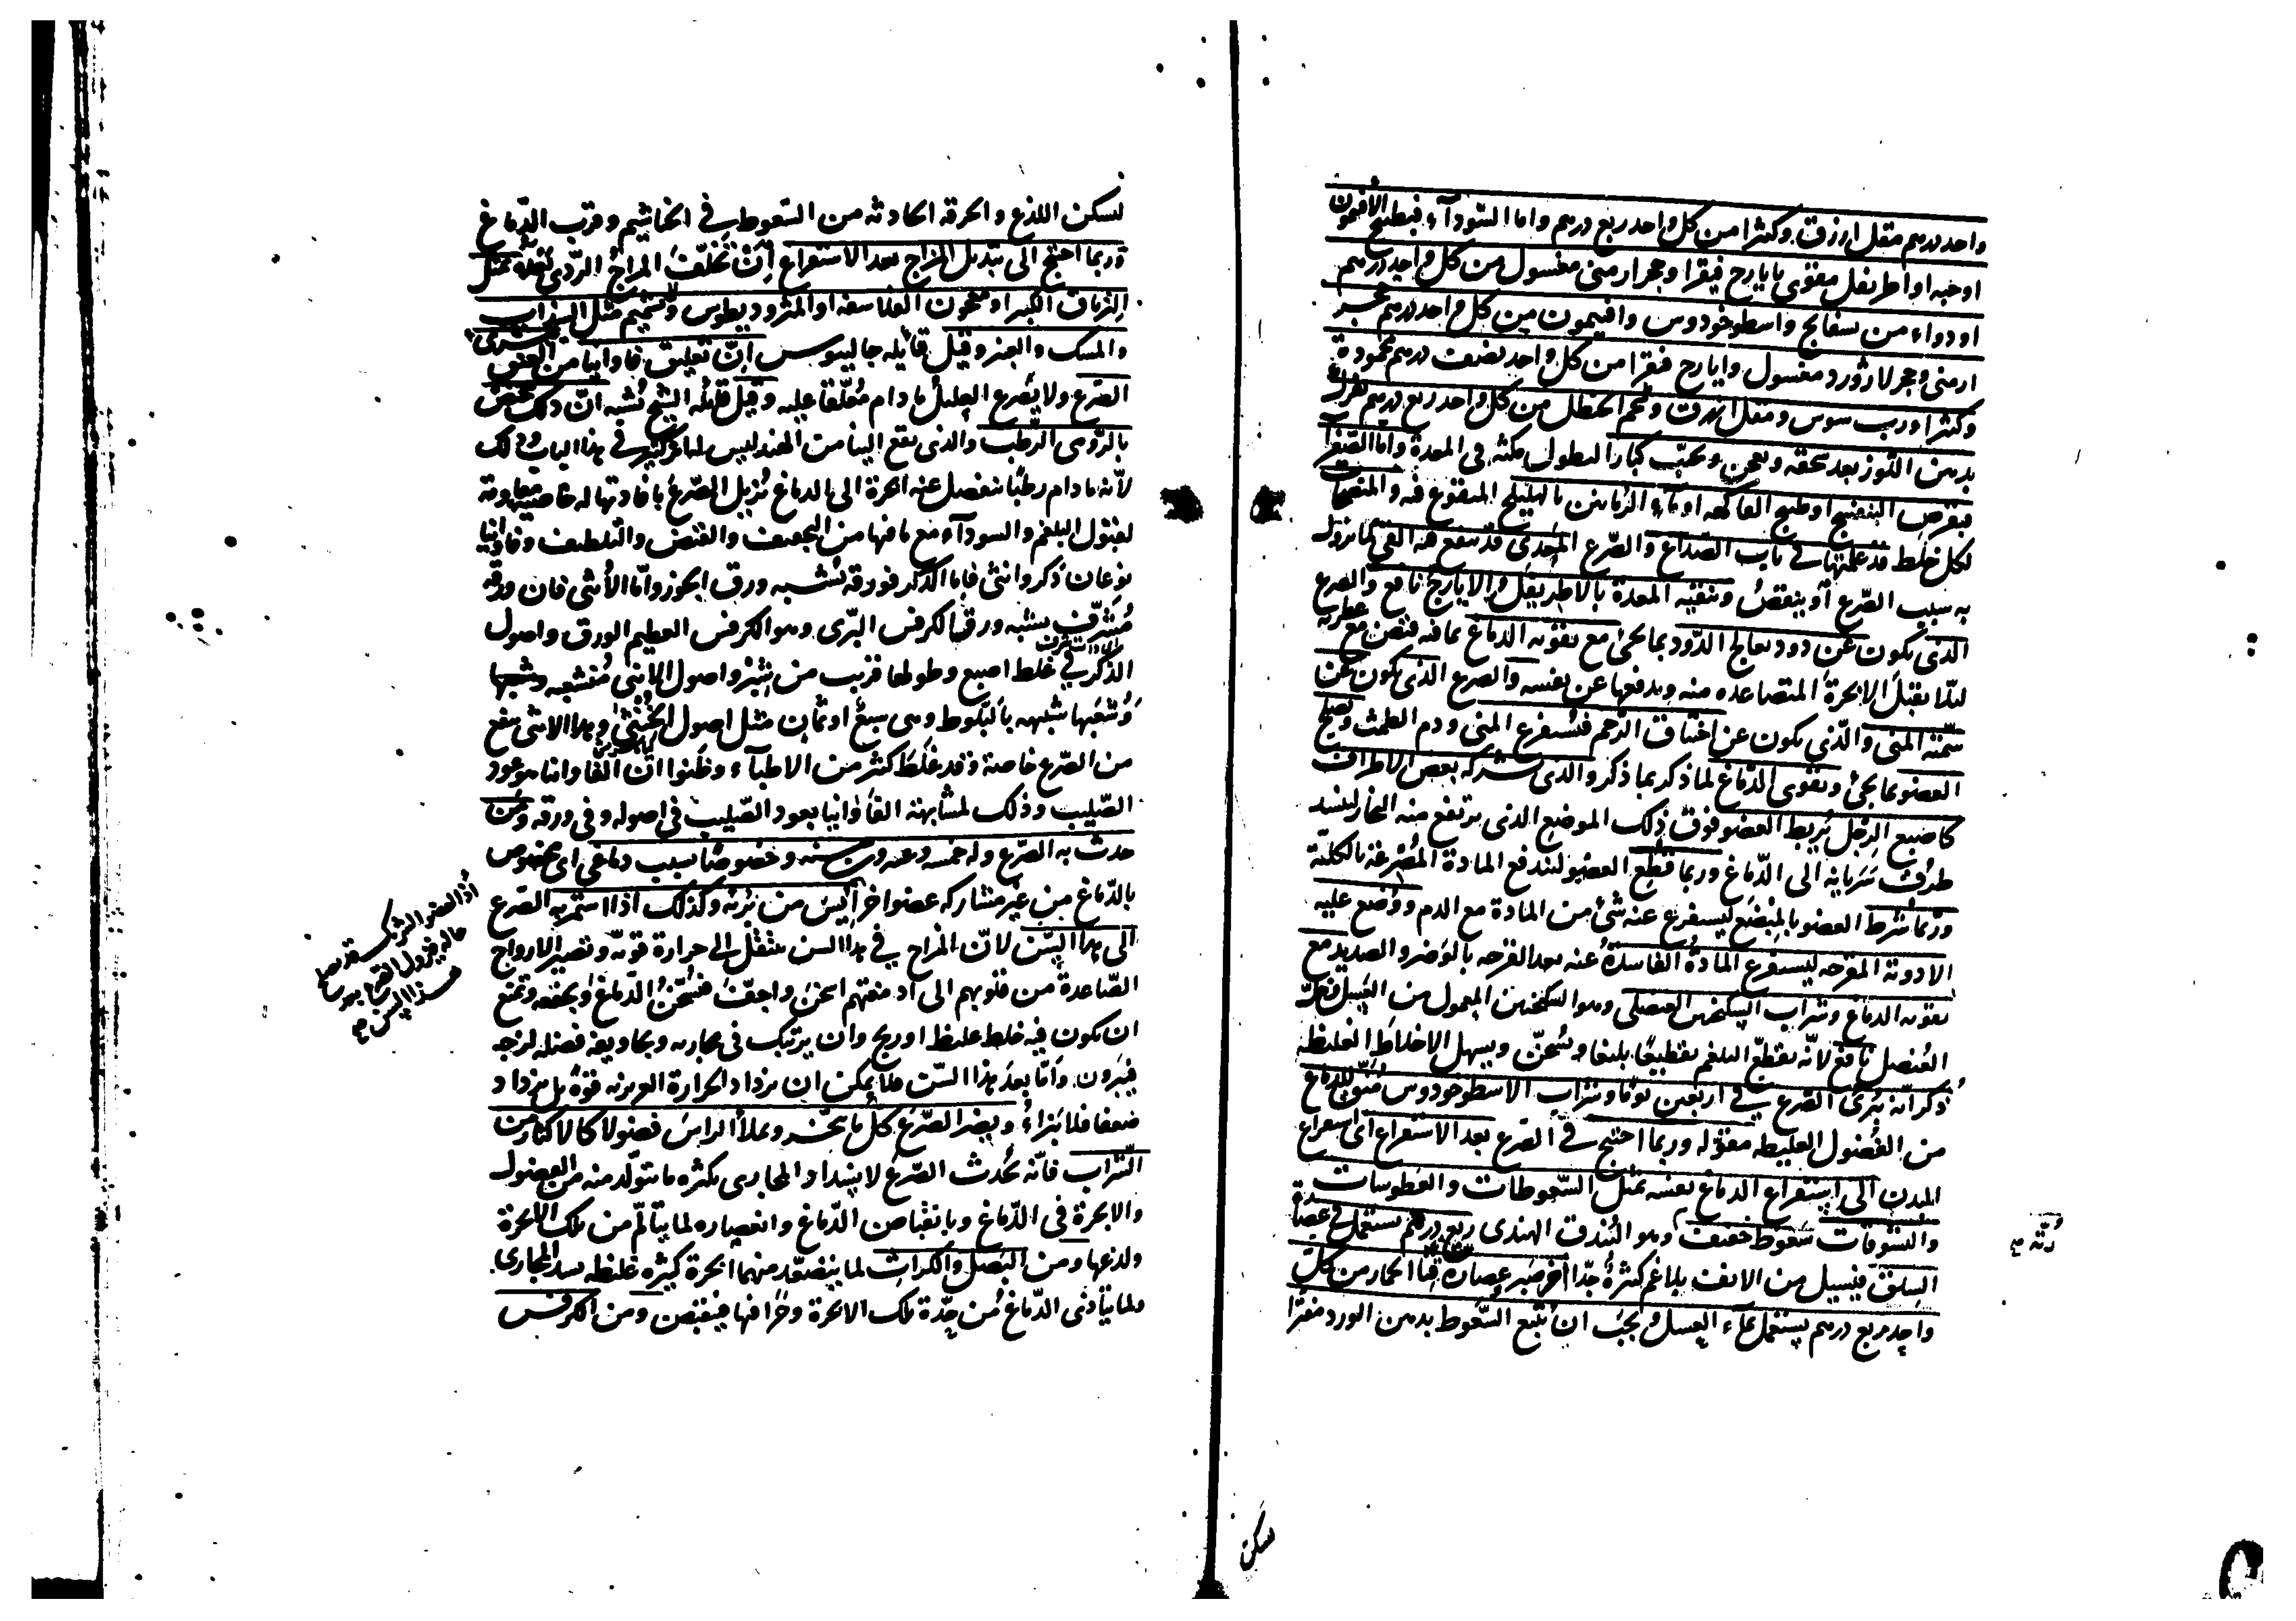 واحد درهم مقل ازرق وكثيرا من كل واحد ربع درهم واما السوداء فبطبيخ الافتيمون
او حبه او اطريفل مقوى بايارج فيقرا وحجر ارمنى مغسول من كل واحد درهم
او دواء من بسفايج واسطوخودوس وافتيمون من كل واحد درهم حجر
ارمنى وحجر لازورد مغسول وايارج فيقرا من كل واحد نصف درهم محمودة
وكثيرا ورب سوس ومقل ازرق وشحم الحنظل من كل واحد ربع درهم يفرك
بدهن اللوز بعد سحقه ويعجن ويحبب كبارا ليطول مكثه فى المعدة واما الصفرا
فبقرص البنفسج او طبيخ الفاكهه او ماء الرمانين بالهليلج المنقوع فيه والمنضجات
لكل خلط قد علمتها فى باب الصداع والصرع المعدى قد ينفع فيه القئ لما يزول
به سبب الصرع او ينقص وتنقيه المعدة بالاطريفل والايارج نافع والصرع
الذى يكون عن دود يعالج الدود بما يجئ مع تقويه الدماغ بما فيه قبض مع عطريه
لئلا يقبل الابخرة المتصاعده منه ويدفعها عن نفسه والصرع الذى يكون عن
سميّة المنى والذى يكون عن اختناق الرحم فيستفرغ المنى ودم الطمث ويصلح
العضو بما يجئ ويقوى الدماغ لما ذكر بما ذكر والذى بشركه بعض الاطراف
كاصبع الرجل يربط العضو فوق ذلك الموضع الذى يرتفع منه البخار لينسد
طرق سريانه الى الدماغ وربما قطع العضو ليندفع المادة المصرعة بالكلية
وربما شرط العضو بالمبضع ليستفرغ عنه شئ من المادة مع الدم ووضع عليه
الادوية المقرحه ليستفرغ المادة الفاسدة عنه بعد القرحه بالوضر والصديد مع
تقويه الدماغ وشراب السكنجبين العنصلى وهو السكنجبين المعمول من العسل وخل
العنصل نافع لانه يقطع البلغم تقطيعا بليغا ويسخن ويسهل الاخلاط الغليظه
ذكر انه يبرئ الصرع فى اربعين يوما وشراب الاسطوخودوس منق للدماغ
من الفضول الغليظه مقوّ له وربما احتيج فى الصرع بعد الاستفراغ اى استفراغ
البدن الى استفراغ الدماغ نفسه بمثل السعوطات والعطوسات
والنشوقات سعوط خفيف وهو البندق الهندى ربع درهم يستعمل فى عصارة
السلق فيسيل من الانف بلاغم كثيرة جدا آخر صبر وعصارة قثا الحمار من كل
واحد ربع درهم يستعمل بماء العسل ويجب ان يتبع السعوط بدهن الورد مفترا
رته
ليسكن
ليسكن اللذع والحرقة الحادثه من السعوط فى الخياشيم وقرب الدماغ
وربما احتيج الى تبديل المزاج بعد الاستفراغ ان تخلف المزاج الردى بمثل
الترياق الكبير او معجون الفلاسفه او المثروديطوس وشميم مثل السذاب
والمسك والعنبر وقيل قايله جالينوس ان تعليق فاوانيا من العنق يبرى
الصرع ولا يصرع العليل ما دام معلقا عليه وقيل قائله الشيخ يشبه ان ذلك مختص
بالرومى الرطب والذى يقع الينا من الهند ليس له تاثير فى هذا الباب وذلك
لانه ما دام رطبا ينفصل عنه ابخرة الى الدماغ تزيل الصرع بافادتها له خاصية معاوقة
لقبول البلغم والسوداء مع ما فيها من التجفيف والقبض والتلطيف وفاوانيا
نوعان ذكر وانثى فاما الذكر فورقه يشبه ورق الجوز واما الانثى فان ورقه
مشرّف يشبه ورق الكرفس البرى وهو الكرفس العظيم الورق واصول
الذكر فى غلظ اصبع وطولها قريب من شبر واصول الانثى متشعبه
وشعبها شبيهه بالبلوط وهى سبع او ثمان مثل اصول الخنثى وهذا الانثى ينفع
من الصرع خاصة وقد غلط كثير من الاطباء وظنوا ان الفاوانيا هو عود
الصليب وذلك لمشابهة الفاوانيا بعود الصليب فى اصوله وفى ورقه ومن
حدث به الصرع وله خمسه وعشرون سنه وخصوصا بسبب دماغى اى مخصوص
بالدماغ من غير مشاركه عضو اخر ايس من برئه وكذلك اذا استمر به الصرع
الى هذا السن لان المزاج فى هذا السن ينتقل الى حرارة قوية وتصير الارواح
الصاعدة من قلوبهم الى ادمغتهم اسخن واجف فتسخن الدماغ وتجففه وتمنع
ان يكون فيه خلط غليظ او ريح وان يرتبك فى مجاريه وتجاويفه فضله لزجه
فيبرون واما بعد هذا السن فلا يمكن ان يزداد الحرارة الغريزيه قوة بل يزداد
ضعفا فلا يبراء ويضر الصرع كل ما يبخر ويملأ الراس فضولا كالاكثار من
الشراب فانه يحدث الصرع لانسداد المجارى بكثره ما يتولد منه من الفضول
والابخرة فى الدماغ وبانقباض الدماغ وانعصاره لما يتألم من تلك الابخرة
ولذعها ومن البصل والكراث لما يتصعد منهما ابخرة كثيره غليظه تسد المجارى
ولما يتأذى الدماغ من حدة تلك الابخرة وحرافتها فينقبض ومن الكرفس